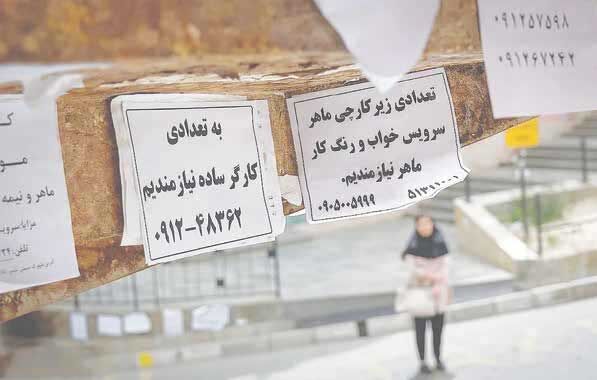 به تعدادی
کارگر ساده نیازمندیم
۰۹۱۲-۴۸۳۶۲
تعدادی زیر کارچی ماهر
سرویس خواب و رنگ کار
ماهر نیازمندیم.
۰۹۰۵۰۰۵۹۹۹
۰۹۱۲۵۷۵۹۸
۰۹۱۲۶۷۲۴۲
ماهر و نیمه